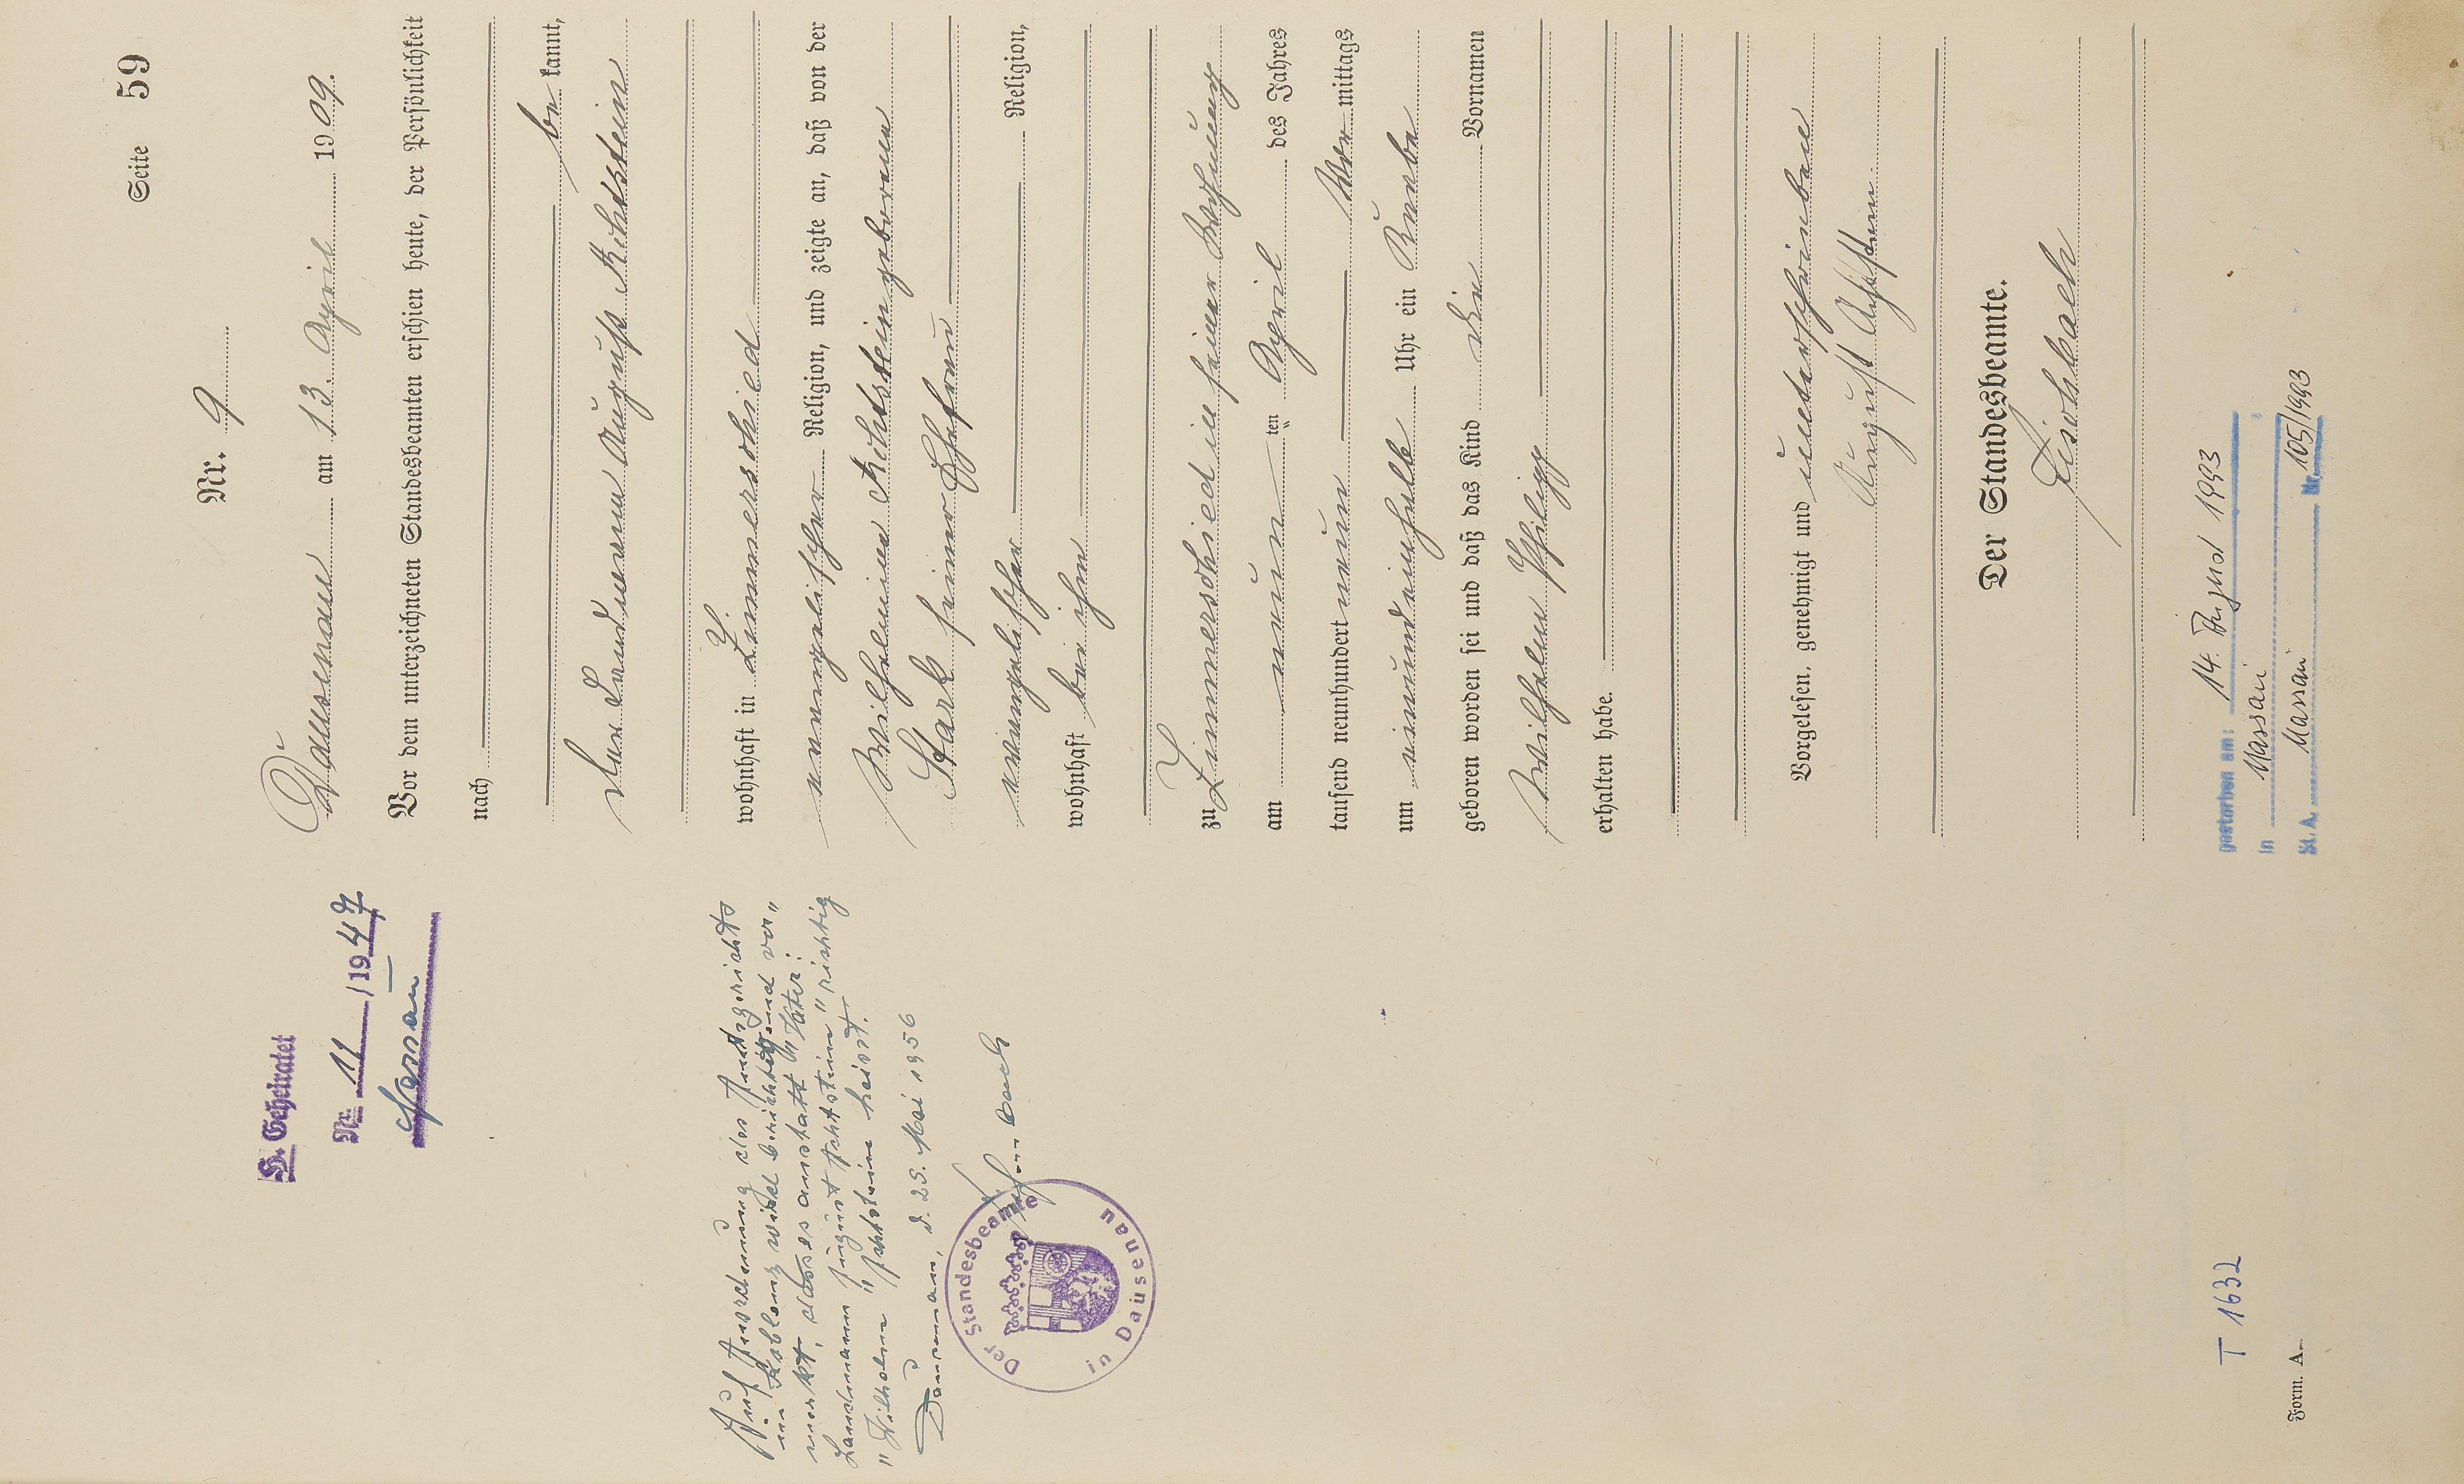 Seite 59
Nr. 9
Dausenau am 13. April 1909.
Vor dem unterzeichneten Standesbeamten erschien heute, der Persönlichkeit
nach
be kannt,
der Landmann August Achtstein
wohnhaft in Zimmerschied
evangelischer Religion, und zeigte an, daß von der
Wilhelmine Achtstein geborenen
Stark seiner Ehefrau
evangelischer Religion,
wohnhaft bei ihm
zu Zimmerschied in seiner Wohnung
am neun ten April des Jahres
tausend neunhundert neun Vor mittags
um einundeinhalb Uhr ein Knabe
geboren worden sei und daß das Kind die Vornamen
Wilhelm Philipp
erhalten habe.
Vorgelesen, genehmigt und unterschrieben
August Achstein.
Der Standesbeamte.
gestorben am: 14. August 1993
in Nassau
St. A. Nassau Nr. 105/1993
H. Geheiratet
Nr. 11 / 1947
Nassau
Auf Anordnung des Amtsgerichts
in Koblenz wird berichtigend ver„
merkt, dass es anstatt „Vater:
Landmann August Achtstein" richtig
"Wilhelm "Achstein heisst.
Dausenau, d. 25. Mai 1956
Der Standesbeamte
in Dausenau
T 1632
Form. A.